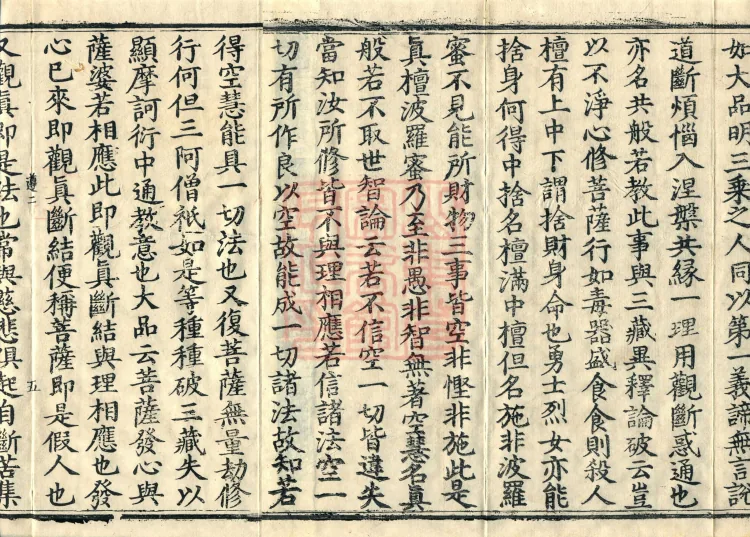 如大品明三乘之人同以第一義諦無言說
道斷煩惱入涅槃共緣一理用觀斷惑通也
亦名共般若教此事與三藏異釋論破云豈
以不淨心修菩薩行如毒器盛食食則殺人
檀有上中下謂捨財身命也勇士烈女亦能
捨身何得中捨名檀滿中檀但名施非波羅
蜜不見能所財物三事皆空非慳非施此是
眞檀波羅蜜乃至非愚非智無著空慧名眞
般若不取世智論云若不信空一切皆違失
當知汝所修皆不與理相應若信諸法空一
切有所作良以空故能成一切諸法故知若
得空慧能具一切法也又復菩薩無量劫修
行何但三阿僧祇如是等種種破三藏失以
顯摩訶衍中通教意也大品云菩薩發心與
薩婆若相應此即觀眞斷結與理相應也發
心已來即觀眞斷結便稱菩薩即是假人也
遵二
五
又觀眞即是法也常與慈悲俱起自斷苦集